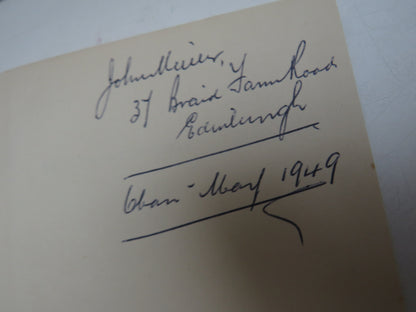 John Miller,
37 Braid Farm Road
Edinburgh
May 1949